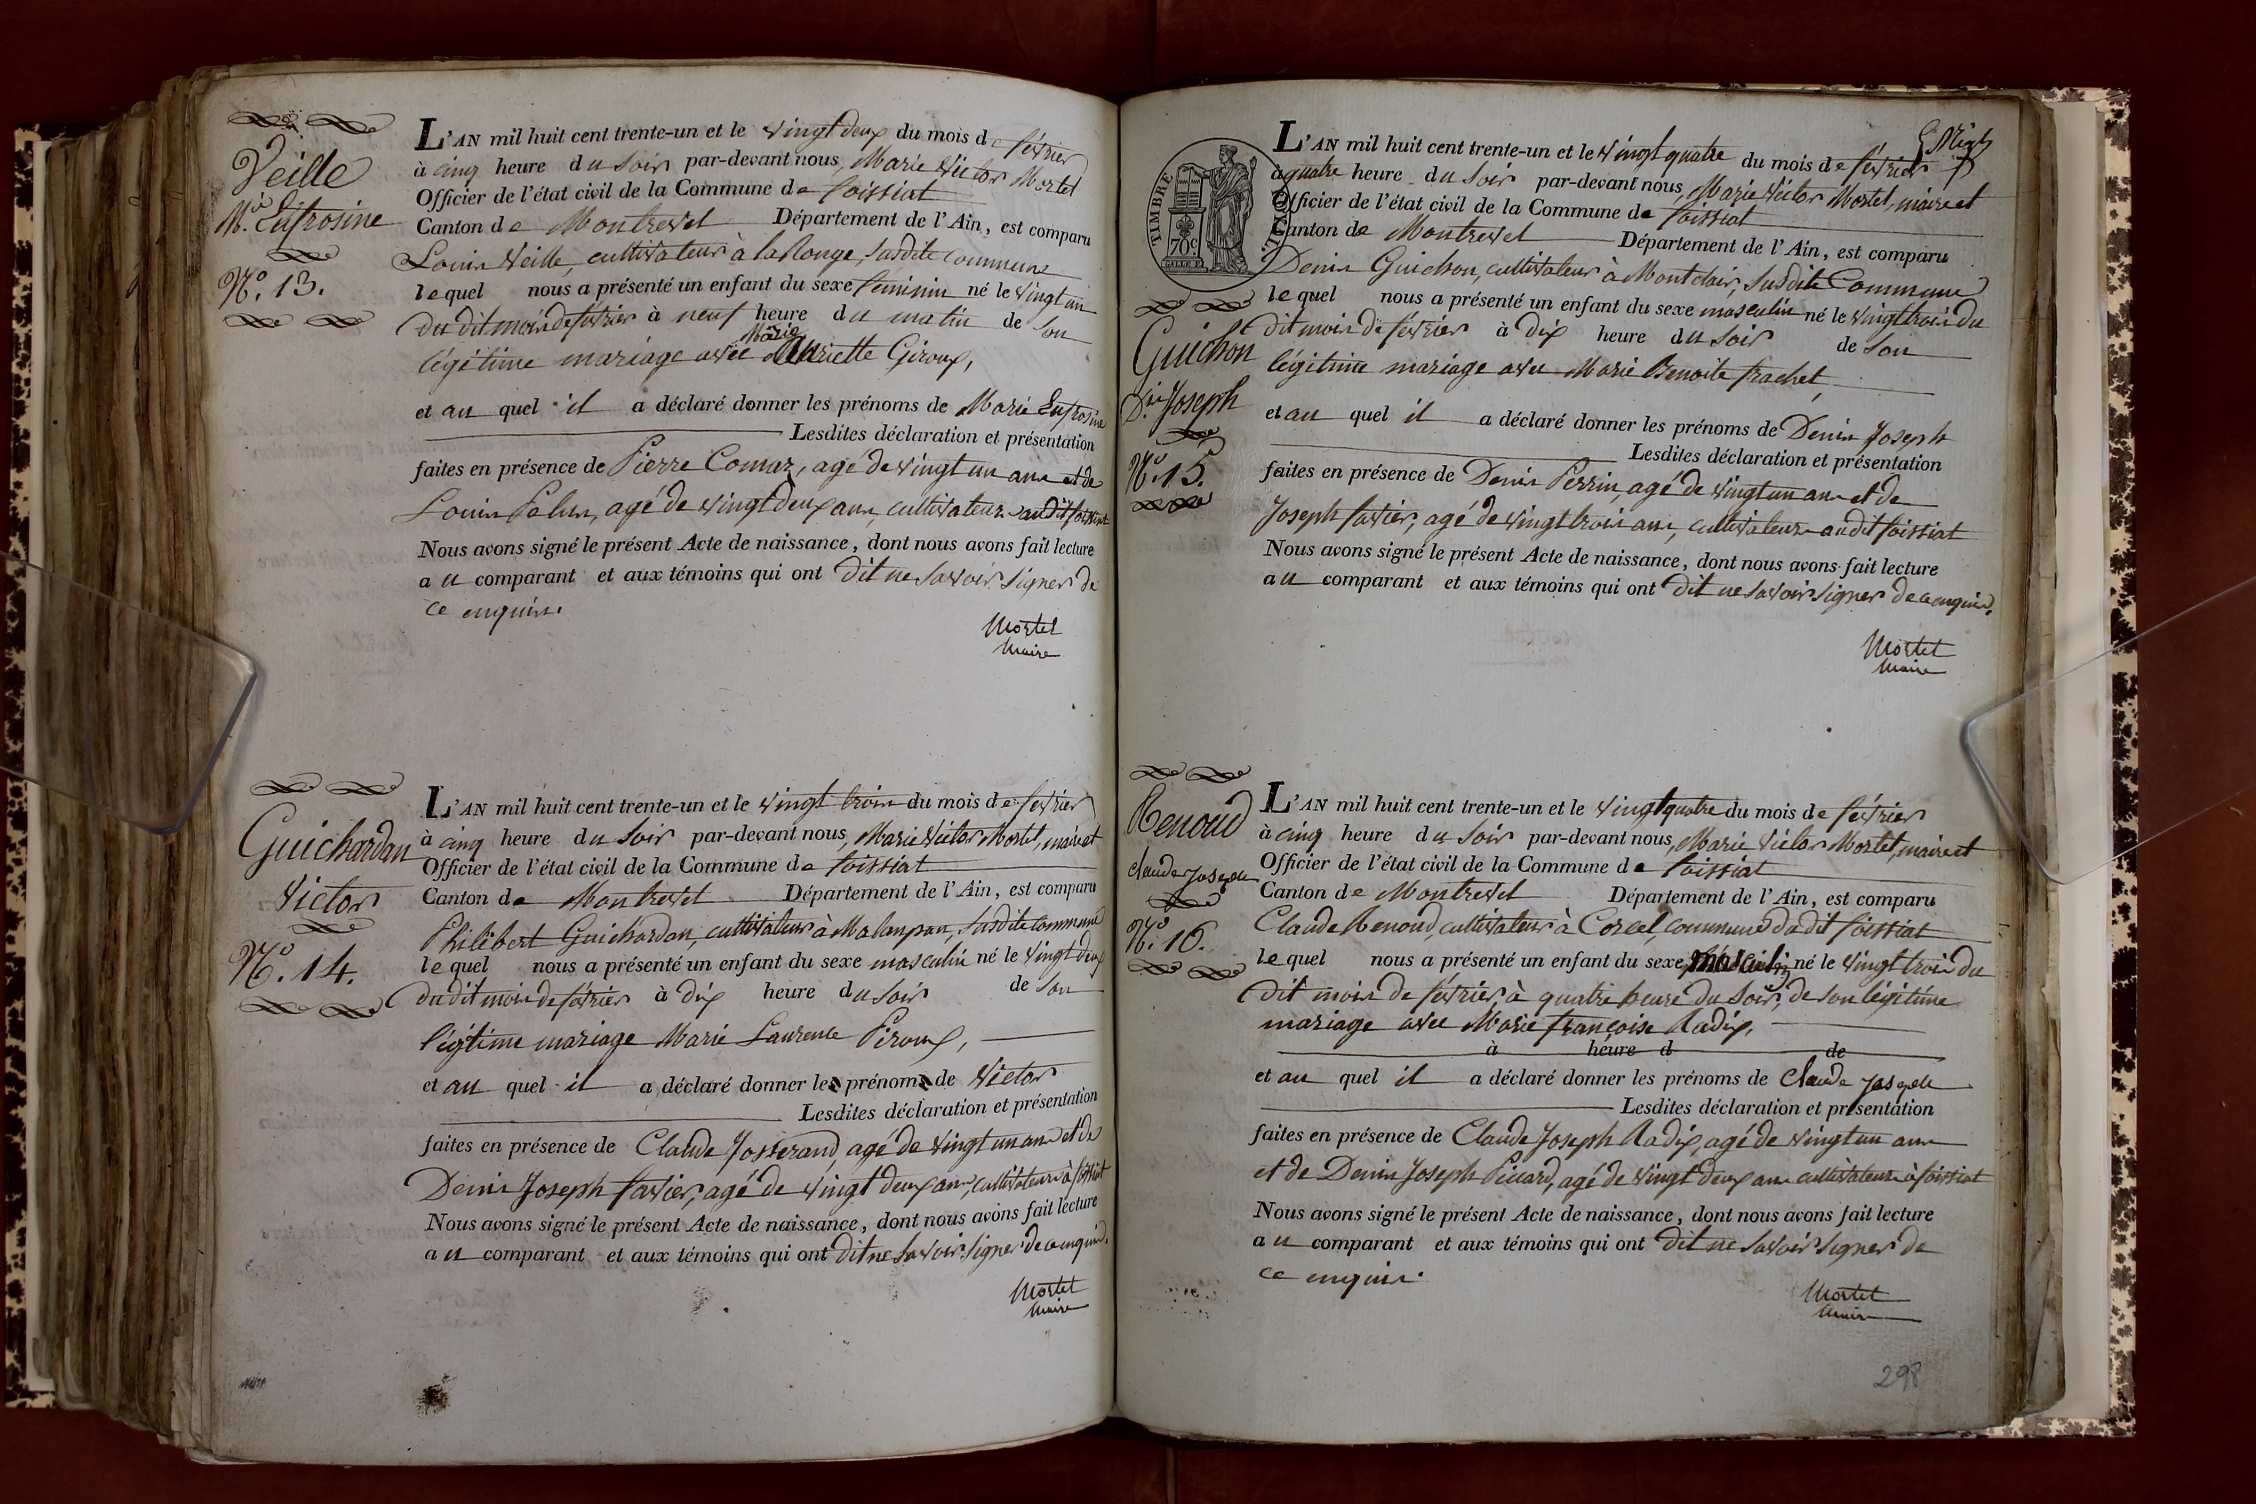 Veille
Mie. Eufrosine
No. 13.
L'AN mil huit cent trente-un et le vingt deux du mois de février
à cinq heure du soir par-devant nous, Marie Victor Mortel
Officier de l'état civil de la Commune de foissiat
Canton de Montrevel Département de l'Ain, est comparu
Louis Veille, cultivateur à la Ronge, susdite commune
lequel nous a présenté un enfant du sexe féminin né le vingt un
du dit mois de février à neuf heure du matin de son
légitime mariage avec Marie Henriette Giroux,
et au quel il a déclaré donner les prénoms de Marie Eufrosine
Lesdites déclaration et présentation
faites en présence de Pierre Comaz, agé de vingt un ans et de
Louis Pelus, agé de vingt deux ans, cultivateurs audit foissiat
Nous avons signé le présent Acte de naissance, dont nous avons fait lecture
au comparant et aux témoins qui ont dit ne savoir signer de
ce enquis.
Mortel
Maire
Guichardan
Victor
No. 14.
L'AN mil huit cent trente-un et le vingt trois du mois de février
à cinq heure du soir par-devant nous, Marie Victor Mortel, maire et
Officier de l'état civil de la Commune de foissiat
Canton de Montrevel Département de l'Ain, est comparu
Philibert Guichardan, cultivateur à Malanpan, susdite commune
lequel nous a présenté un enfant du sexe masculin né le vingt deux
du dit mois de février à dix heure du soir de son
légitime mariage Marie Laurence Piroux,
et au quel il a déclaré donner le prénom de Victor
Lesdites déclaration et présentation
faites en présence de Claude Josserand, agé de vingt un ans et de
Denis Joseph favier, agé de vingt deux ans, cultivateurs à foissiat
Nous avons signé le présent Acte de naissance, dont nous avons fait lecture
au comparant et aux témoins qui ont dit ne savoir signer de ce enquis.
Mortel
Maire
TIMBRE
70c
Guichon
Dis Joseph
No. 15.
L'AN mil huit cent trente-un et le vingt quatre du mois de février
à quatre heure du soir par-devant nous, Marie Victor Mortel, maire et
Officier de l'état civil de la Commune de foissiat
Canton de Montrevel Département de l'Ain, est comparu
Denis Guichon, cultivateur à Montclair, susdite Commune
lequel nous a présenté un enfant du sexe masculin né le vingt trois du
dit mois de février à dix heure du soir de son
légitime mariage avec Marie Benoite frachet,
et au quel il a déclaré donner les prénoms de Denis Joseph
Lesdites déclaration et présentation
faites en présence de Denis Perrin, agé de vingt un ans et de
Joseph favier, agé de vingt trois ans, cultivateurs audit foissiat
Nous avons signé le présent Acte de naissance, dont nous avons fait lecture
au comparant et aux témoins qui ont dit ne savoir signer de ce enquis.
Mortel
Maire
Renoud
Claude Joseph
No. 16.
L'AN mil huit cent trente-un et le vingt quatre du mois de février
à cinq heure du soir par-devant nous, Marie Victor Mortel, maire et
Officier de l'état civil de la Commune de foissiat
Canton de Montrevel Département de l'Ain, est comparu
Claude Renoud, cultivateur à Corcel, commune dudit foissiat
lequel nous a présenté un enfant du sexe masculin né le vingt trois du
dit mois de février, à quatre heure du soir, de son légitime
mariage avec Marie françoise Radix,
à heure d de
et au quel il a déclaré donner les prénoms de Claude Joseph
Lesdites déclaration et présentation
faites en présence de Claude Joseph Radix, agé de vingt un ans
et de Denis Joseph Piccard, agé de vingt deux ans cultivateurs à foissiat
Nous avons signé le présent Acte de naissance, dont nous avons fait lecture
au comparant et aux témoins qui ont dit ne savoir signer de
ce enquis.
Mortel
Maire
298